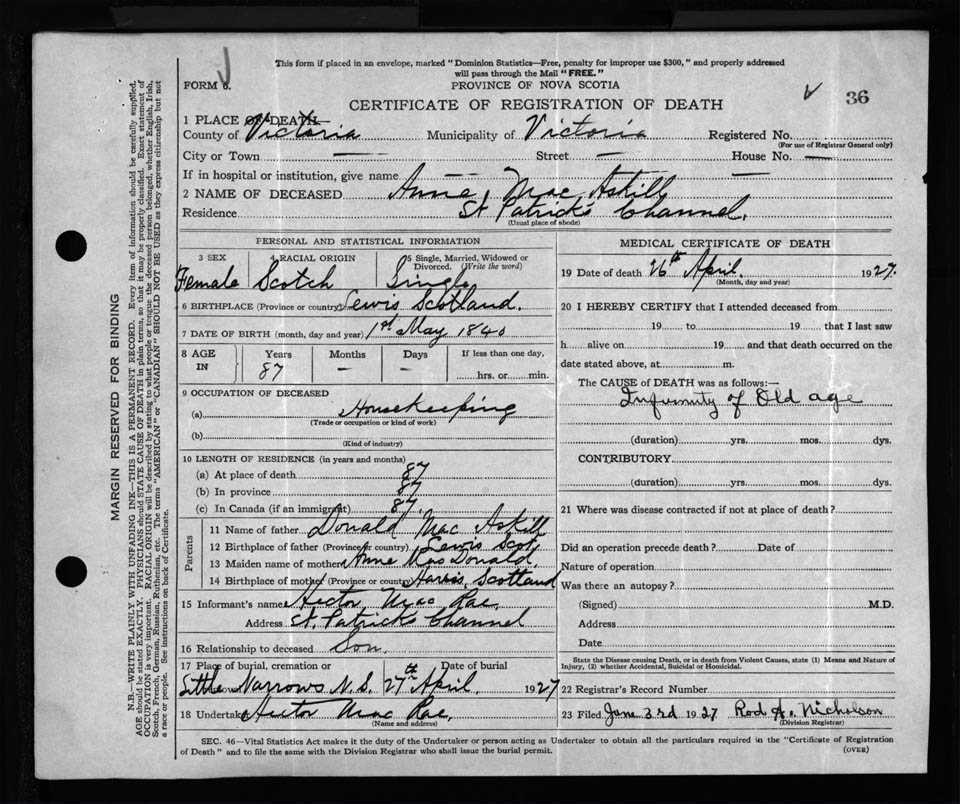 This form if placed in an envelope, marked "Dominion Statistics—Free, penalty for improper use $300," and properly addressed
will pass through the Mail "FREE."
FORM 6.
PROVINCE OF NOVA SCOTIA
CERTIFICATE OF REGISTRATION OF DEATH
36
1 PLACE OF DEATH—
County of Victoria Municipality of Victoria Registered No.
(For use of Registrar General only)
City or Town — Street — House No. —
If in hospital or institution, give name — —
2 NAME OF DECEASED Anne Mac Askill
Residence St Patrick's Channel.
(Usual place of abode)
PERSONAL AND STATISTICAL INFORMATION
3 SEX 4 RACIAL ORIGIN 5 Single, Married, Widowed or Divorced. (Write the word)
Female Scotch Single
6 BIRTHPLACE (Province or country) Lewis Scotland.
7 DATE OF BIRTH (month, day and year) 1st May 1840
8 AGE IN Years Months Days If less than one day,
87 — — hrs. or min.
9 OCCUPATION OF DECEASED
(a) Housekeeping
(Trade or occupation or kind of work)
(b)
(Kind of industry)
10 LENGTH OF RESIDENCE (in years and months)
(a) At place of death 87
(b) In province 87
(c) In Canada (if an immigrant) 87
Parents
11 Name of father Donald Mac Askill
12 Birthplace of father (Province or country) Lewis Scot,
13 Maiden name of mother Anne MacDonald,
14 Birthplace of mother (Province or country) Harris, Scotland
15 Informant's name Hector Mac Rae,
Address St. Patricks Channel
16 Relationship to deceased Son.
17 Place of burial, cremation or Date of burial
Little Narrows N.S. 27th April, 1927
18 Undertaker Hector Mac Rae,
(Name and address)
MEDICAL CERTIFICATE OF DEATH
19 Date of death 26th April. 1927.
(Month, day and year)
20 I HEREBY CERTIFY that I attended deceased from
19 to 19 that I last saw
h alive on 19 and that death occurred on the
date stated above, at m.
The CAUSE OF DEATH was as follows:—
Infirmity of Old age
(duration) yrs. mos. dys.
CONTRIBUTORY.
(duration) yrs. mos. dys.
21 Where was disease contracted if not at place of death?
Did an operation precede death? Date of
Nature of operation
Was there an autopsy?
(Signed) M.D.
Address
Date
State the Disease causing Death, or in death from Violent Causes, state (1) Means and Nature of
Injury, (2) whether Accidental, Suicidal or Homicidal.
22 Registrar's Record Number
23 Filed June 3rd 1927 Rod A. Nicholson
(Division Registrar)
SEC. 46—Vital Statistics Act makes it the duty of the Undertaker or person acting as Undertaker to obtain all the particulars required in the "Certificate of Registration
of Death" and to file the same with the Division Registrar who shall issue the burial permit.
(OVER)
MARGIN RESERVED FOR BINDING
N.B.—WRITE PLAINLY WITH UNFADING INK—THIS IS A PERMANENT RECORD. Every item of information should be carefully supplied.
AGE should be stated EXACTLY. PHYSICIANS should STATE CAUSE OF DEATH in plain terms, so that it may be properly classified. Exact statement of
OCCUPATION is very important. RACIAL ORIGIN will be described by stating to what people or tongue the deceased person belonged, whether English, Irish,
Scotch, French, German, Russian, Ruthenian, etc. The terms "AMERICAN" or "CANADIAN" SHOULD NOT BE USED as they express citizenship but not
a race or people. See instructions on back of Certificate.